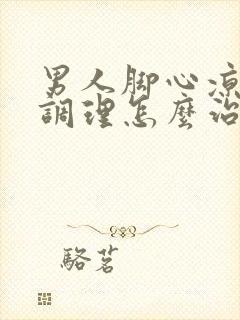 男人脚心凉
調理怎麼治
駱茗